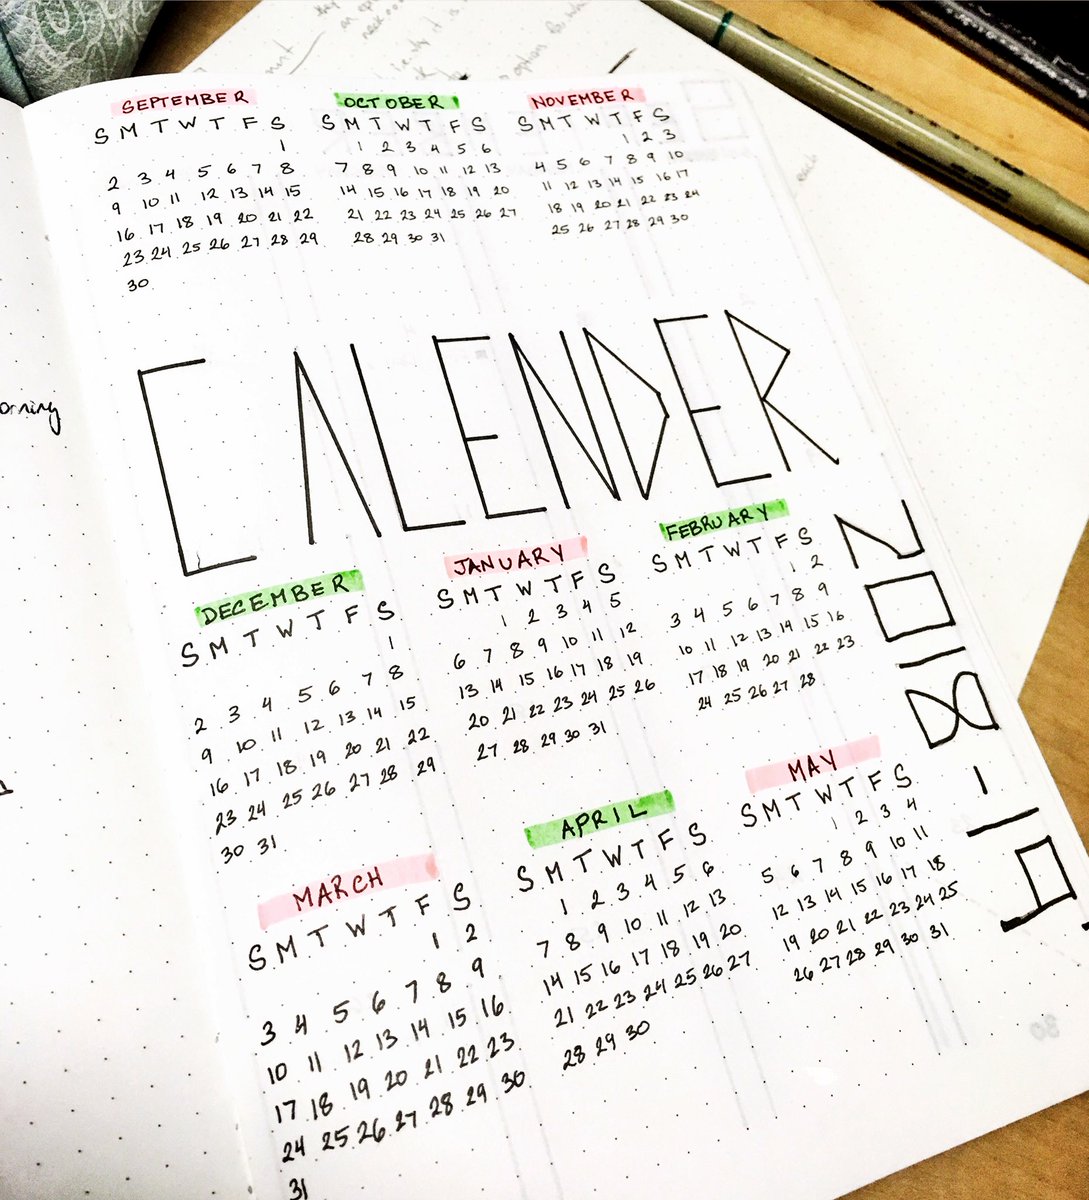 SEPTEMBER
S M T W T F S
1
2 3 4 5 6 7 8
9 10 11 12 13 14 15
16 17 18 19 20 21 22
23 24 25 26 27 28 29
30
OCTOBER
S M T W T F S
1 2 3 4 5 6
7 8 9 10 11 12 13
14 15 16 17 18 19 20
21 22 23 24 25 26 27
28 29 30 31
NOVEMBER
S M T W T F S
1 2 3
4 5 6 7 8 9 10
11 12 13 14 15 16 17
18 19 20 21 22 23 24
25 26 27 28 29 30
orning
CALENDER
2018-19
DECEMBER
S M T W T F S
1
2 3 4 5 6 7 8
9 10 11 12 13 14 15
16 17 18 19 20 21 22
23 24 25 26 27 28 29
30 31
JANUARY
S M T W T F S
1 2 3 4 5
6 7 8 9 10 11 12
13 14 15 16 17 18 19
20 21 22 23 24 25 26
27 28 29 30 31
FEBRUARY
S M T W T F S
1 2
3 4 5 6 7 8 9
10 11 12 13 14 15 16
17 18 19 20 21 22 23
24 25 26 27 28
MARCH
S M T W T F S
1 2
3 4 5 6 7 8 9
10 11 12 13 14 15 16
17 18 19 20 21 22 23
24 25 26 27 28 29 30
31
APRIL
S M T W T F S
1 2 3 4 5 6
7 8 9 10 11 12 13
14 15 16 17 18 19 20
21 22 23 24 25 26 27
28 29 30
MAY
S M T W T F S
1 2 3 4
5 6 7 8 9 10 11
12 13 14 15 16 17 18
19 20 21 22 23 24 25
26 27 28 29 30 31